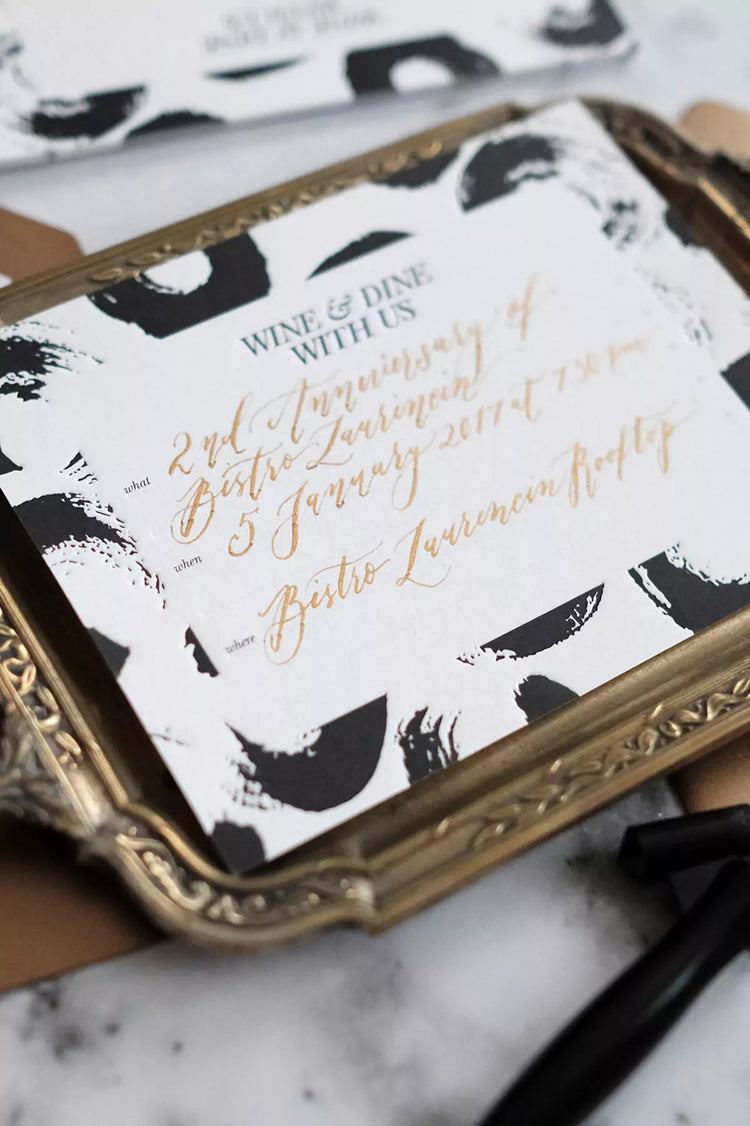 WINE & DINE
WITH US
what
2nd Anniversary of
Bistro Laurencin
when
5 January 2017 at 7.30 pm
where
Bistro Laurencin Rooftop